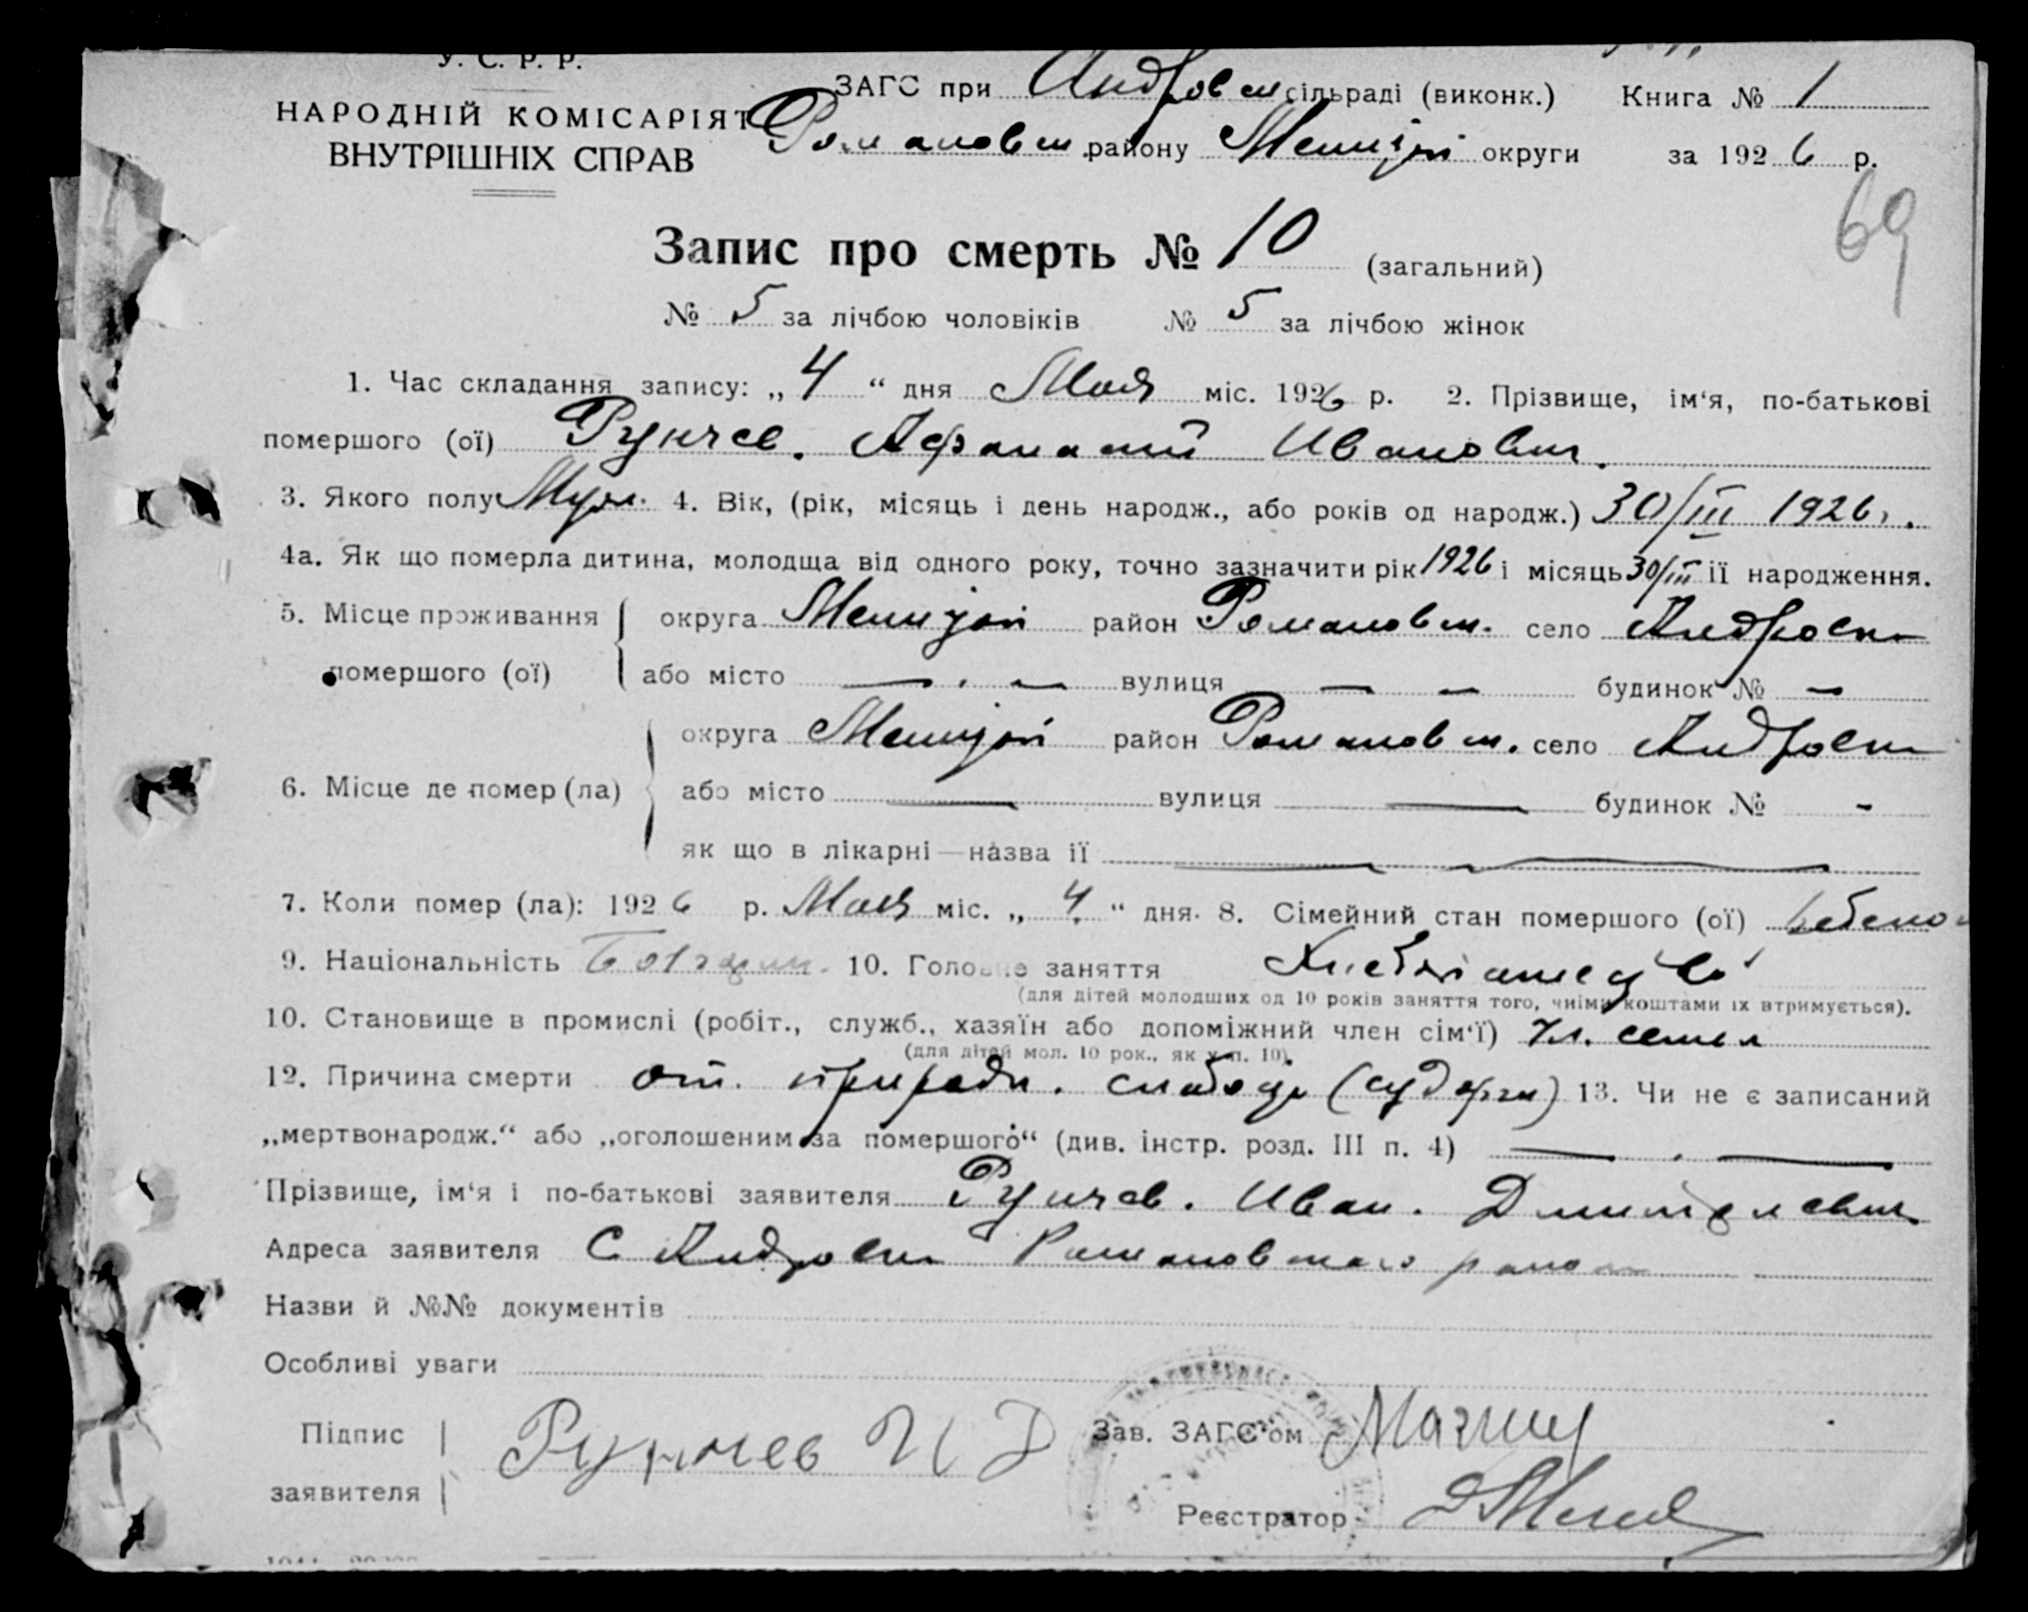 У. С. Р. Р.
НАРОДНІЙ КОМІСАРІЯТ
ВНУТРІШНІХ СПРАВ
ЗАГС при Андров сільраді (виконк.) Книга № 1
Романовск району округи за 1926 р.
69
Запис про смерть № 10 (загальний)
№ 5 за лічбою чоловіків № 5 за лічбою жінок
1. Час складання запису: „4“ дня Мая міс. 1926 р. 2. Прізвище, ім‘я, по-батькові
помершого (ої) Рунчев. Афанасий Иванович.
3. Якого полу Муж. 4. Вік, (рік, місяць і день народж., або років од народж.) 30/III 1926.
4а. Як що померла дитина, молодща від одного року, точно зазначити рік 1926 і місяць 30/III ії народження.
5. Місце проживання округа район Романовск. село Андровка
помершого (ої) або місто — . — вулиця — — будинок № —
округа район Романовск. село Андровка
6. Місце де помер (ла) або місто — вулиця — будинок № -
як що в лікарні—назва ії —
7. Коли помер (ла): 1926 р. Мая міс. „4“ дня. 8. Сімейний стан помершого (ої)
9. Національність Болгарин. 10. Головне заняття
(для дітей молодших од 10 років заняття того, чиїми коштами їх втримується).
10. Становище в промислі (робіт., служб., хазяїн або допоміжний член сім‘ї) чл. семьи
(для дітей мол. 10 рок., як у п. 10).
12. Причина смерти от. природн. 13. Чи не є записаний
„мертвонародж.“ або „оголошеним за помершого“ (див. інстр. розд. III п. 4) — . —
Прізвище, ім‘я і по-батькові заявителя Рунчев. Иван. Дмитриевич
Адреса заявителя С Андровка Романовского района
Назви й №№ документів
Особливі уваги
Підпис заявителя Рунчев И Д
Зав. ЗАГС‘ом
Реєстратор